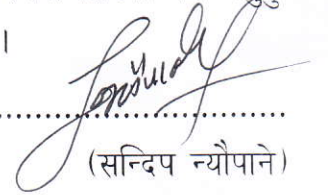 ।
(सन्दिप न्यौपाने)